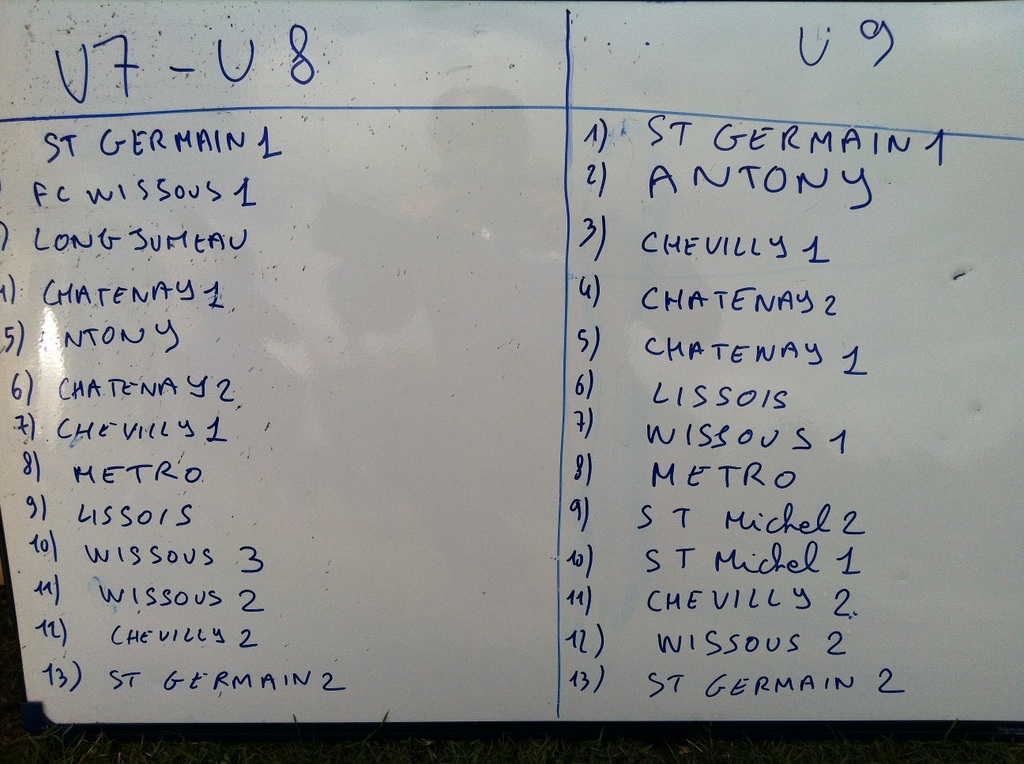 U7 - U 8
ST GERMAIN 1
FC WISSOUS 1
) LONGJUMEAU
4) CHATENAY 1
5) ANTONY
6) CHATENAY 2
7) CHEVILLY 1
8) METRO
9) LISSOIS
10) WISSOUS 3
11) WISSOUS 2
12) CHEVILLY 2
13) ST GERMAIN 2
U 9
1) ST GERMAIN 1
2) ANTONY
3) CHEVILLY 1
4) CHATENAY 2
5) CHATENAY 1
6) LISSOIS
7) WISSOUS 1
8) METRO
9) ST Michel 2
10) ST Michel 1
11) CHEVILLY 2.
12) WISSOUS 2
13) ST GERMAIN 2